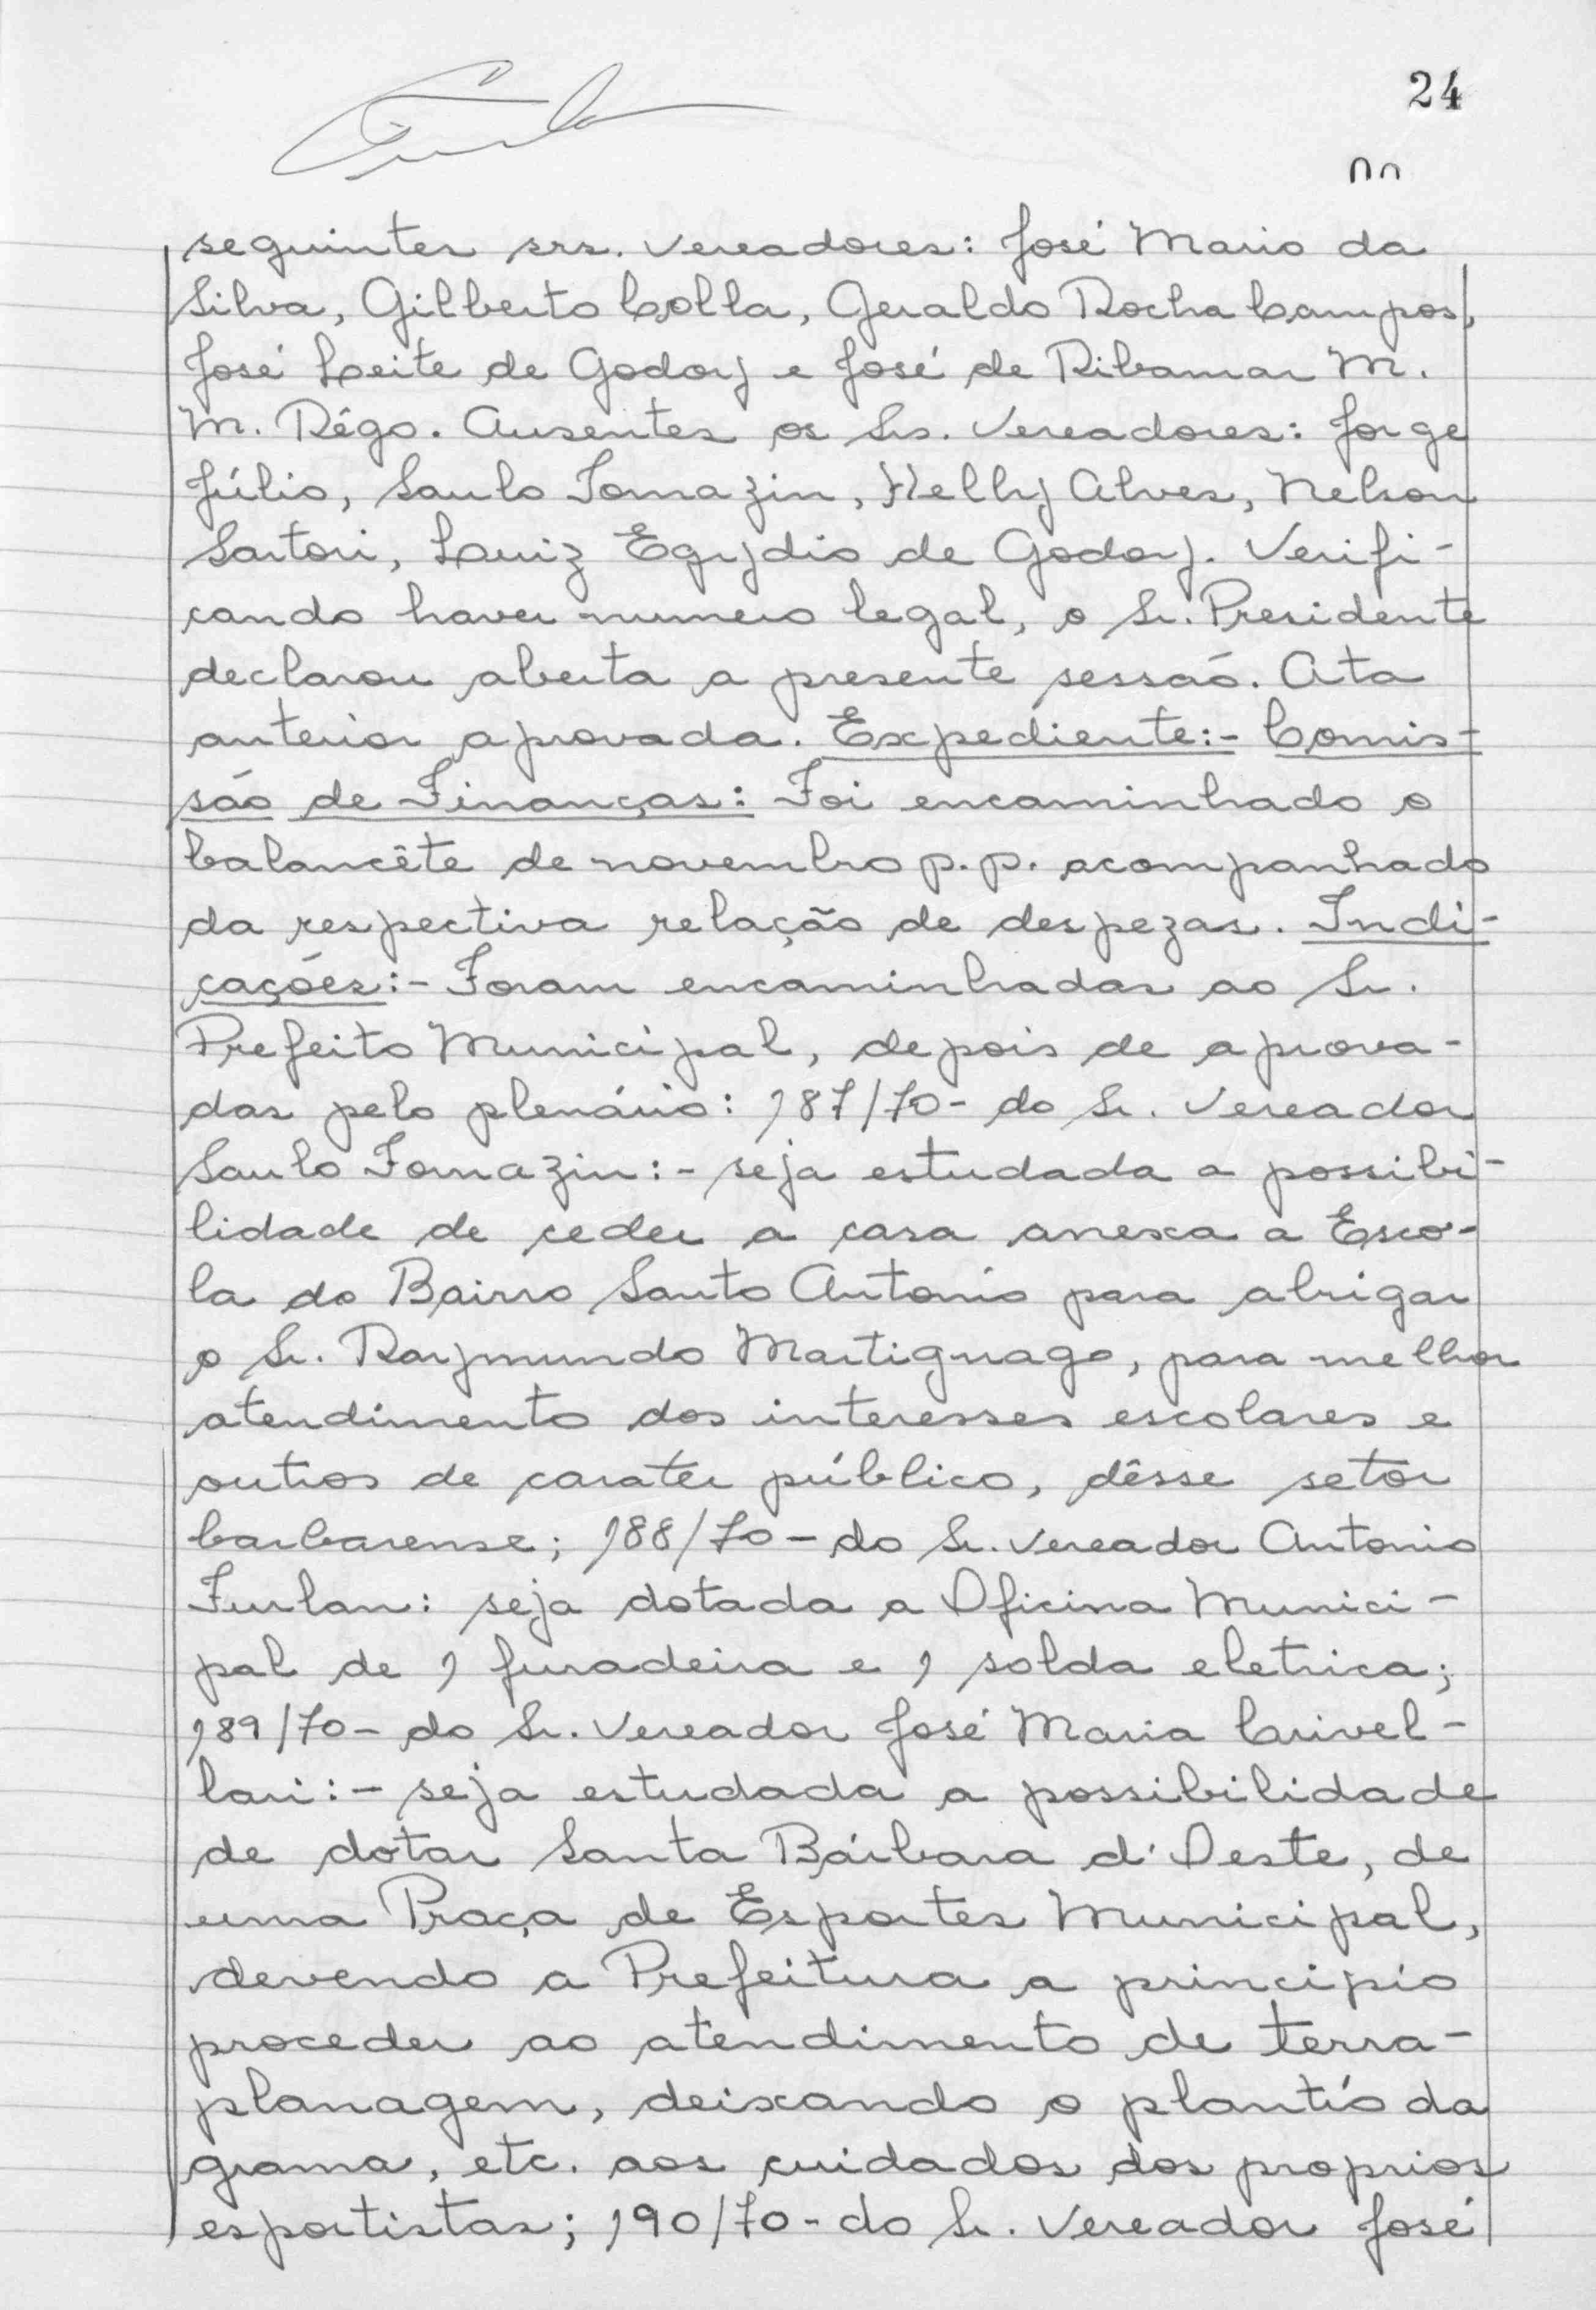 24
seguintes srs. vereadores: José Mario da
Silva, Gilberto Colla, Geraldo Rocha Campos,
José Leite de Godoy e José de Ribamar M.
M. Rêgo. Ausentes os Srs. Vereadores: Jorge
Júlio, Saulo Fomazin, Helly Alves, Nelson
Sartori, Luiz Egydio de Godoy. Verifi-
cando haver numero legal, o Sr. Presidente
declarou aberta a presente sessão. Ata
anterior aprovada. Expediente:- Comis-
são de Finanças: Foi encaminhado o
balancête de novembro p.p. acompanhado
da respectiva relação de despezas. Indi-
cações:- Foram encaminhadas ao Sr.
Prefeito Municipal, depois de aprova-
das pelo plenário: 187/70- do Sr. Vereador
Saulo Fomazin:- seja estudada a possibi-
lidade de ceder a casa anexa a Esco-
la do Bairro Santo Antonio para abrigar
o Sr. Raymundo Martignago, para melhor
atendimento dos interesses escolares e
outros de carater público, dêsse setor
barbarense; 188/70- do Sr. Vereador Antonio
Furlan: seja dotada a Oficina Munici-
pal de 1 furadeira e 1 solda eletrica;
189/70- do Sr. Vereador José Maria Crivel-
lari:- seja estudada a possibilidade
de dotar Santa Bárbara d'Oeste, de
uma Praça de Esportes Municipal,
devendo a Prefeitura a principio
proceder ao atendimento de terra-
planagem, deixando o plantío da
grama, etc. aos cuidados dos proprios
esportistas; 190/70- do Sr. Vereador José